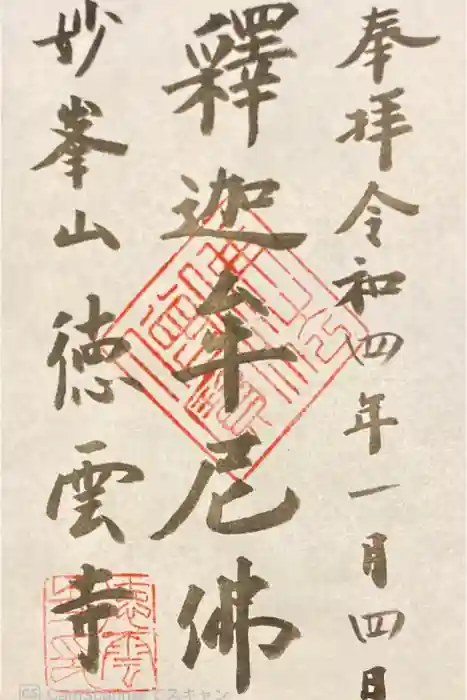 奉拝令和四年一月四日
釋迦牟尼佛
妙峯山徳雲寺
CS CamScanner でスキャン